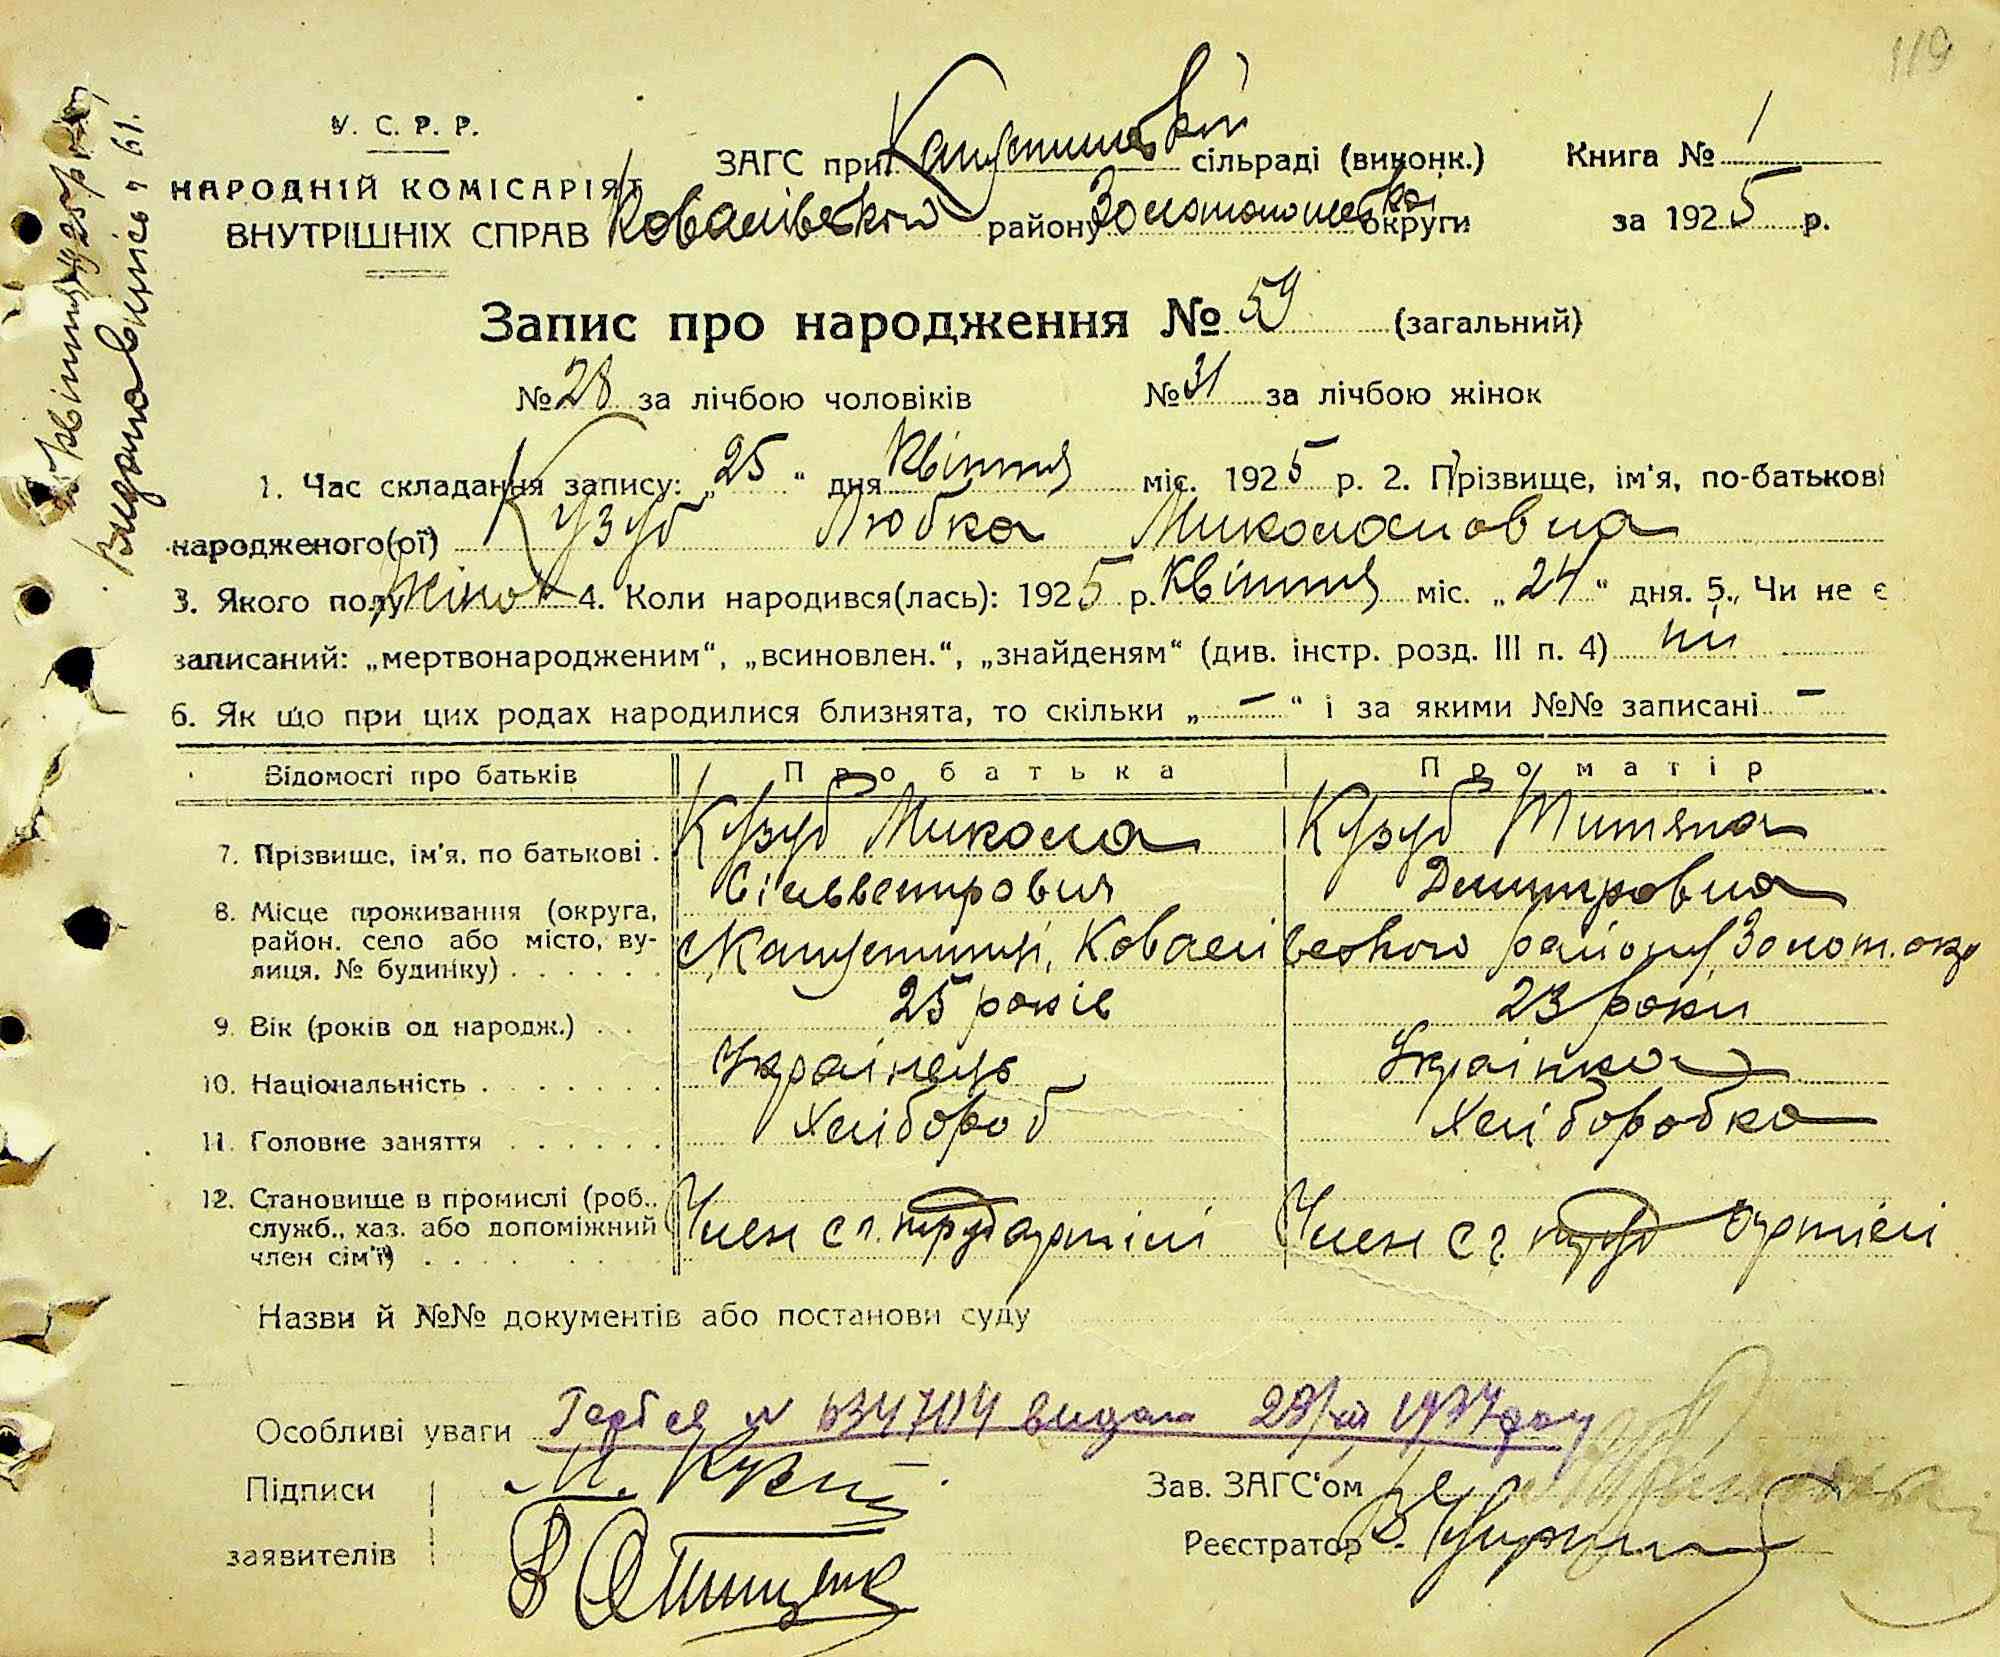 119
У. С. Р. Р.
НАРОДНІЙ КОМІСАРІЯТ
ВНУТРІШНІХ СПРАВ
ЗАГС при Капустинській сільраді (виконк.)
Ковалівського району Золотоношської округи
Книга № 1
за 1925 р.
Запис про народження № 59 (загальний)
№ 28 за лічбою чоловіків № 31 за лічбою жінок
1. Час складання запису: „25" дня Квітня міс. 1925 р. 2. Прізвище, ім'я, по-батькові
народженого(ої) Кузуб Любка Миколановна
3. Якого полу жіноч 4. Коли народився(лась): 1925 р. Квітня міс. „24" дня. 5. Чи не є
записаний: „мертвонародженим", „всиновлен.", „знайденям" (див. інстр. розд. III п. 4) ні
6. Як що при цих родах народилися близнята, то скільки „ — " і за якими №№ записані —
Відомості про батьків Про батька Про матір
7. Прізвище, ім'я, по батькові . Кузуб Микола Сільвестрович Кузуб Титяна Дмитровна
8. Місце проживання (округа,
район, село або місто, ву-
лиця, № будинку) . . . . . . Ковалівського району Золот. окр
9. Вік (років од народж.) . . 25 років 23 роки
10. Національність . . . . . . . Українець Українка
11. Головне заняття . . . . . . Хлібороб Хліборобка
12. Становище в промислі (роб.,
служб., хаз. або допоміжний
член сім'ї) . . . . Член с г. труд артілі Член с г. труд артілі
Назви й №№ документів або постанови суду
Особливі уваги 634704 видан 29/XII 1937 году
Підписи
заявителів
М. Кузуб
Зав. ЗАГС'ом
Реєстратор